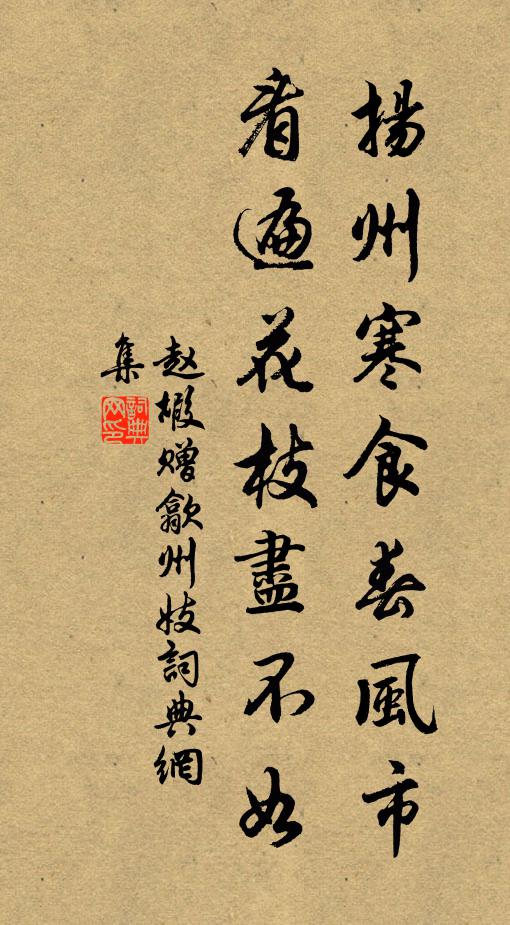 揚州寒食春風市
看遍花枝盡不如
赵嘏赠歙州妓詞典網
集
詞典網印